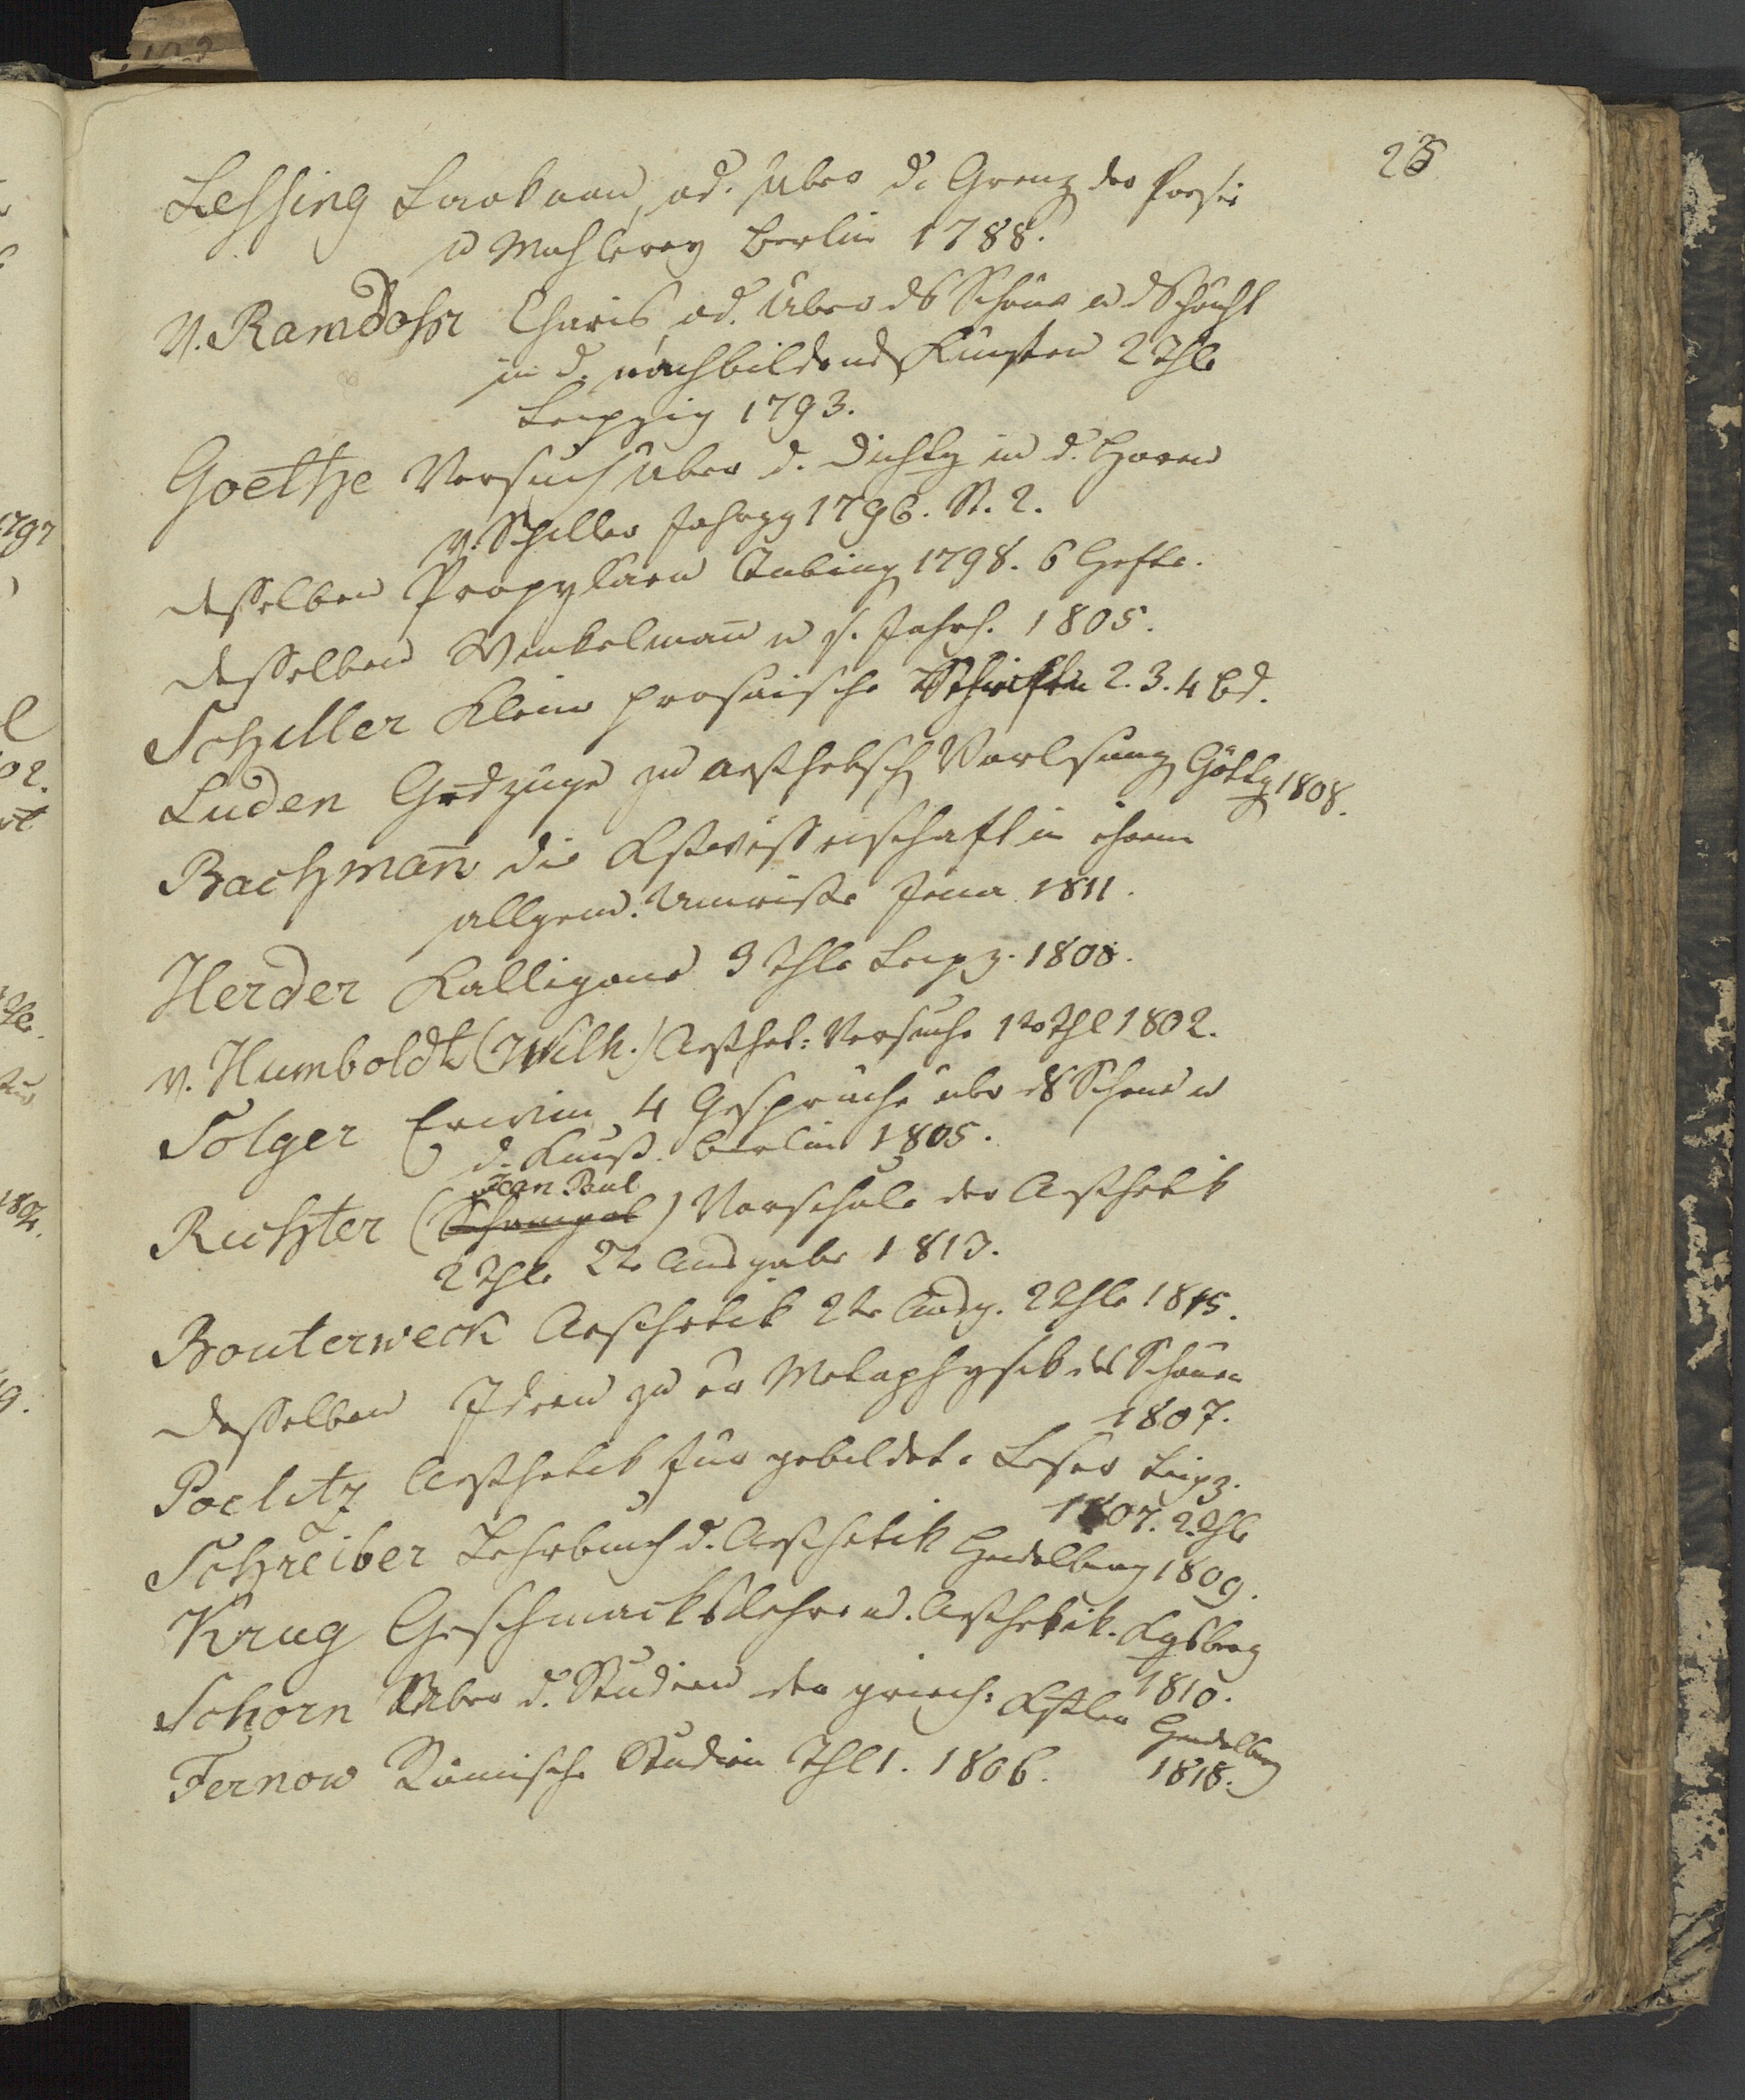 25
Lessing Laokoon, od. über d. Grenz der Poesie
u Mahlerey Berlin 1788.
v. Ramdohr Charis od. über ds Schöne u d Schönht
in d. nachbildend Künsten 2 Thle
Leipzig 1793.
Goethe Versuch über d. Dichtg in d. Horen
v. Schiller Jahrgg 1796. St. 2.
desselben Propyläen Tübing 1798. 6 Hefte.
desselben Winkelmañ u s. Jahrh. 1805.
Schiller Kleine prosaische Schriften 2. 3. 4 Bd.
Luden Grdzüge zu aesthetisch Vorlesung Göttg 1808.
Bachmañ die Kstwissenschaft in ihrem
allgem. Umrisse Jena 1811.
Herder Kalligone 3 Thle Leipz. 1800.
v. Humboldt (Wilh.) Aesthet: Versuche 1r Thl 1802.
Solger Erwin 4 Gespräche über ds Schöne u
d. Kunst. Berlin 1805.
Jean Paul
Richter ( ) Vorschule der Aesthetik
2 Thle 2te Ausgabe 1813.
Bouterweck Aesthetik 2te Ausg. 2 Thle 1815.
desselben Ideen zu er Metaphysik des Schönen
1807.
Poelitz Aesthetik für gebildete Leser Leipz.
1807. 2 Thle
Schreiber Lehrbuch d. Aesthetik Heidelberg 1809.
Krug Geschmackslehre od. Aesthetik. Kgsberg
1810.
Schorn Über d. Studien der griech: Kstler Heidelberg
1818.
Fernow Römische Studien Thl 1. 1806.
1797